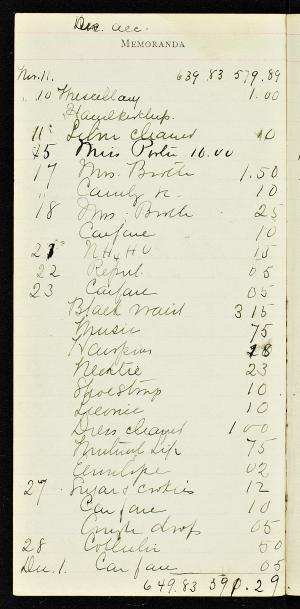 Dec. acc.
MEMORANDA
Nov. 11. 639.83 579.89
" 10 Miscellany 1.00
Handkerchip.
11 cleaned 10
15 Miss Porter 10.00
17 Mrs. Broth 1.50
" Candy &c. 10
18 Mrs. Broth 25
Carfare 10
21 NH4HO 15
22 Repub. 05
23 Carfare 05
Black waist 3 15
Music 75
Hairpins 18
Necktie 23
Shoestrap 10
10
Dress cleaned 1 00
Mutual 75
Envelope 02
27 Sugar & cookies 12
Carfare 10
Cough drops 05
28 50
Dec. 1. Car fare 05
649.83 590.29